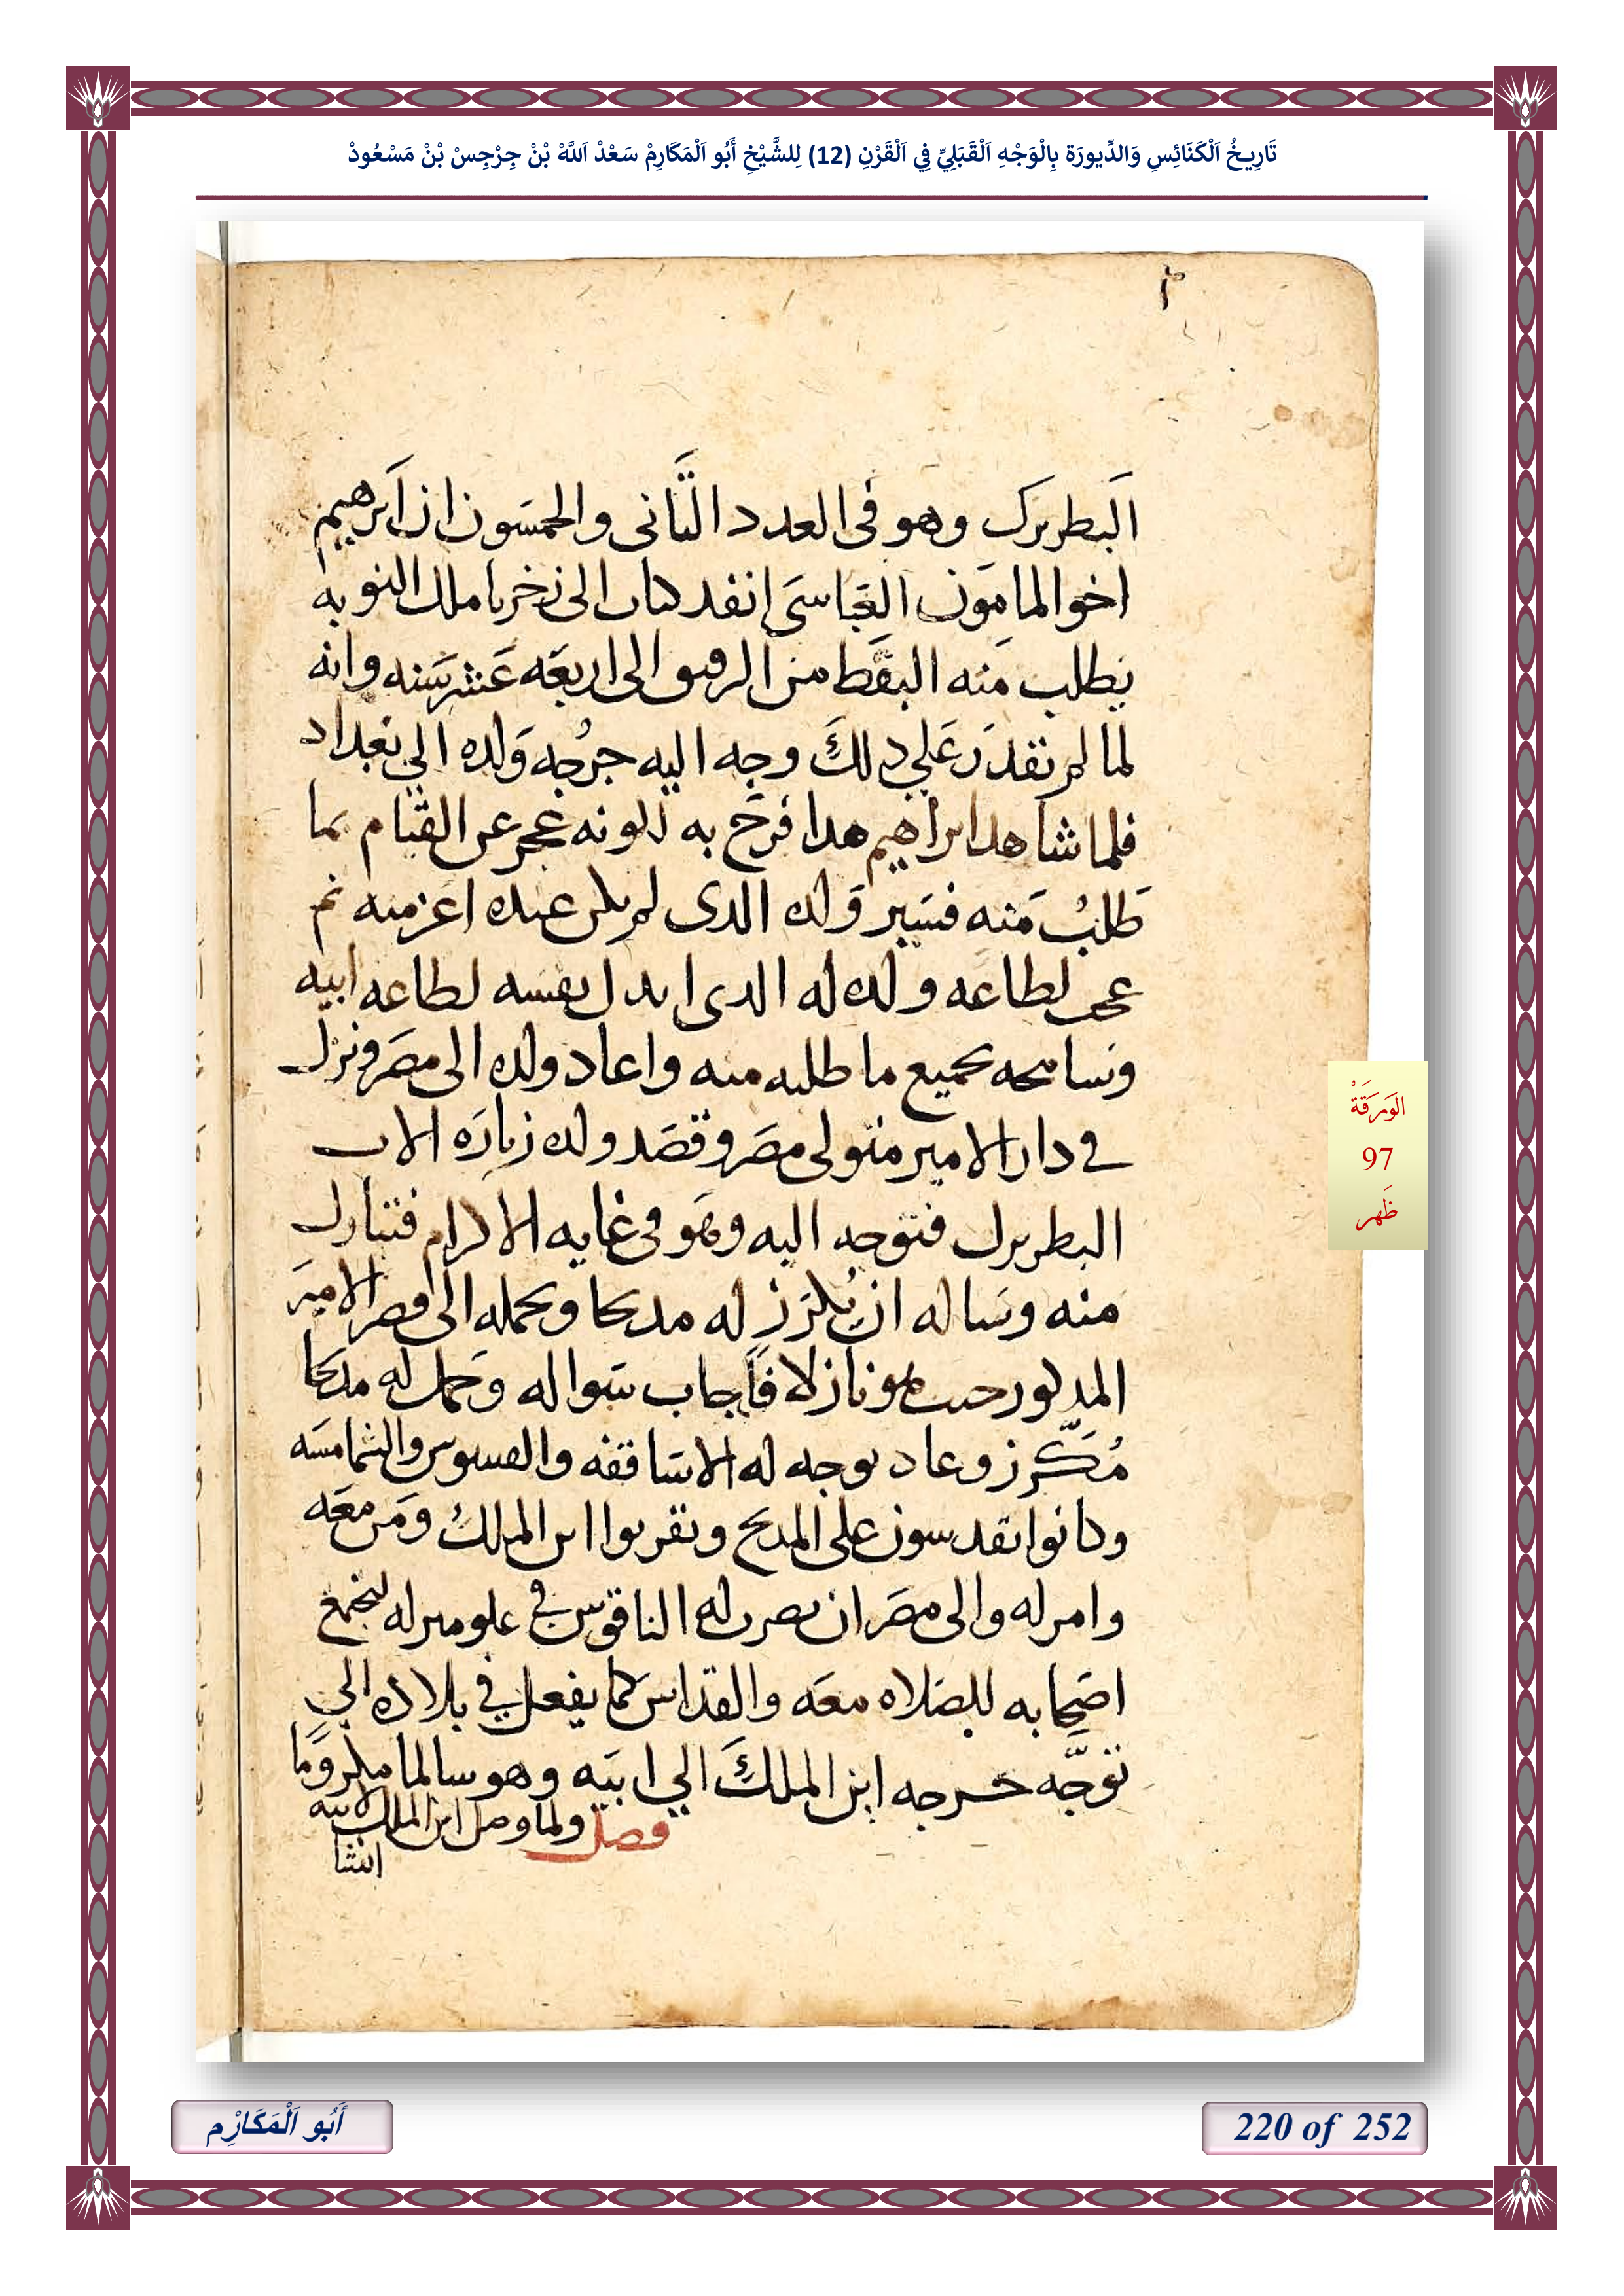 تَارِيخُ اَلْكَنَائِسِ وَالدِّيورَة بِالْوَجْهِ اَلْقَبَلِيِّ فِي اَلْقَرْنِ (12) لِلشَّيْخِ أَبُو اَلْمَكَارِمْ سَعْدْ اَللَّهْ بْنْ جِرْجِسْ بْنْ مَسْعُودْ
البطريرك وهو في العدد الثاني والخمسون ان ابرهيم
اخوا المامون العباسي انفد كتاب الى زخريا ملك النوبه
يطلب منه البقط من الرقيق الى اربعه عشر سنه وانه
لما لم يقدر علي دلك وجه اليه جرجه ولده الي بغداد
فلما شاهد ابراهيم هدا فرح به لكونه عجز عن القيام بما
طلب منه فسير ولده الدي لم يكن عنده اعز منه ثم
عجب لطاعه ولده له الدي ابدل نفسه لطاعه ابيه
وسامحه بجميع ما طلبه منه واعاد ولده الى مصر ونزل
في دار الامير متولى مصر وقصد ولده زياره الاب
البطريرك فتوجه اليه وهو في غايه الاكرام فتبارك
منه وساله ان يكرز له مدبحا ويحمله الى قصر الامير
المدكور حيث هو نازلا فاجاب سواله وحمل له مدبحا
مكرز وعاد يوجه له الاساقفه والقسوس والشمامسه
وكانوا يقدسون على المدبح وتقربوا ابن الملك ومن معه
وامر له والى مصر ان يضرب له الناقوس في علو منزله ليجمع
اصحابه للصلاه معه والقداس كما يفعل في بلاده الي
توجه جرجه ابن الملك الي ابيه وهو سالما مكروما
فصل ولما وصل ابن الملك لابيه
انشا
الوَرَقَةْ
97
ظَهر
أَبُو اَلْمَكَارِْم
220 of 252